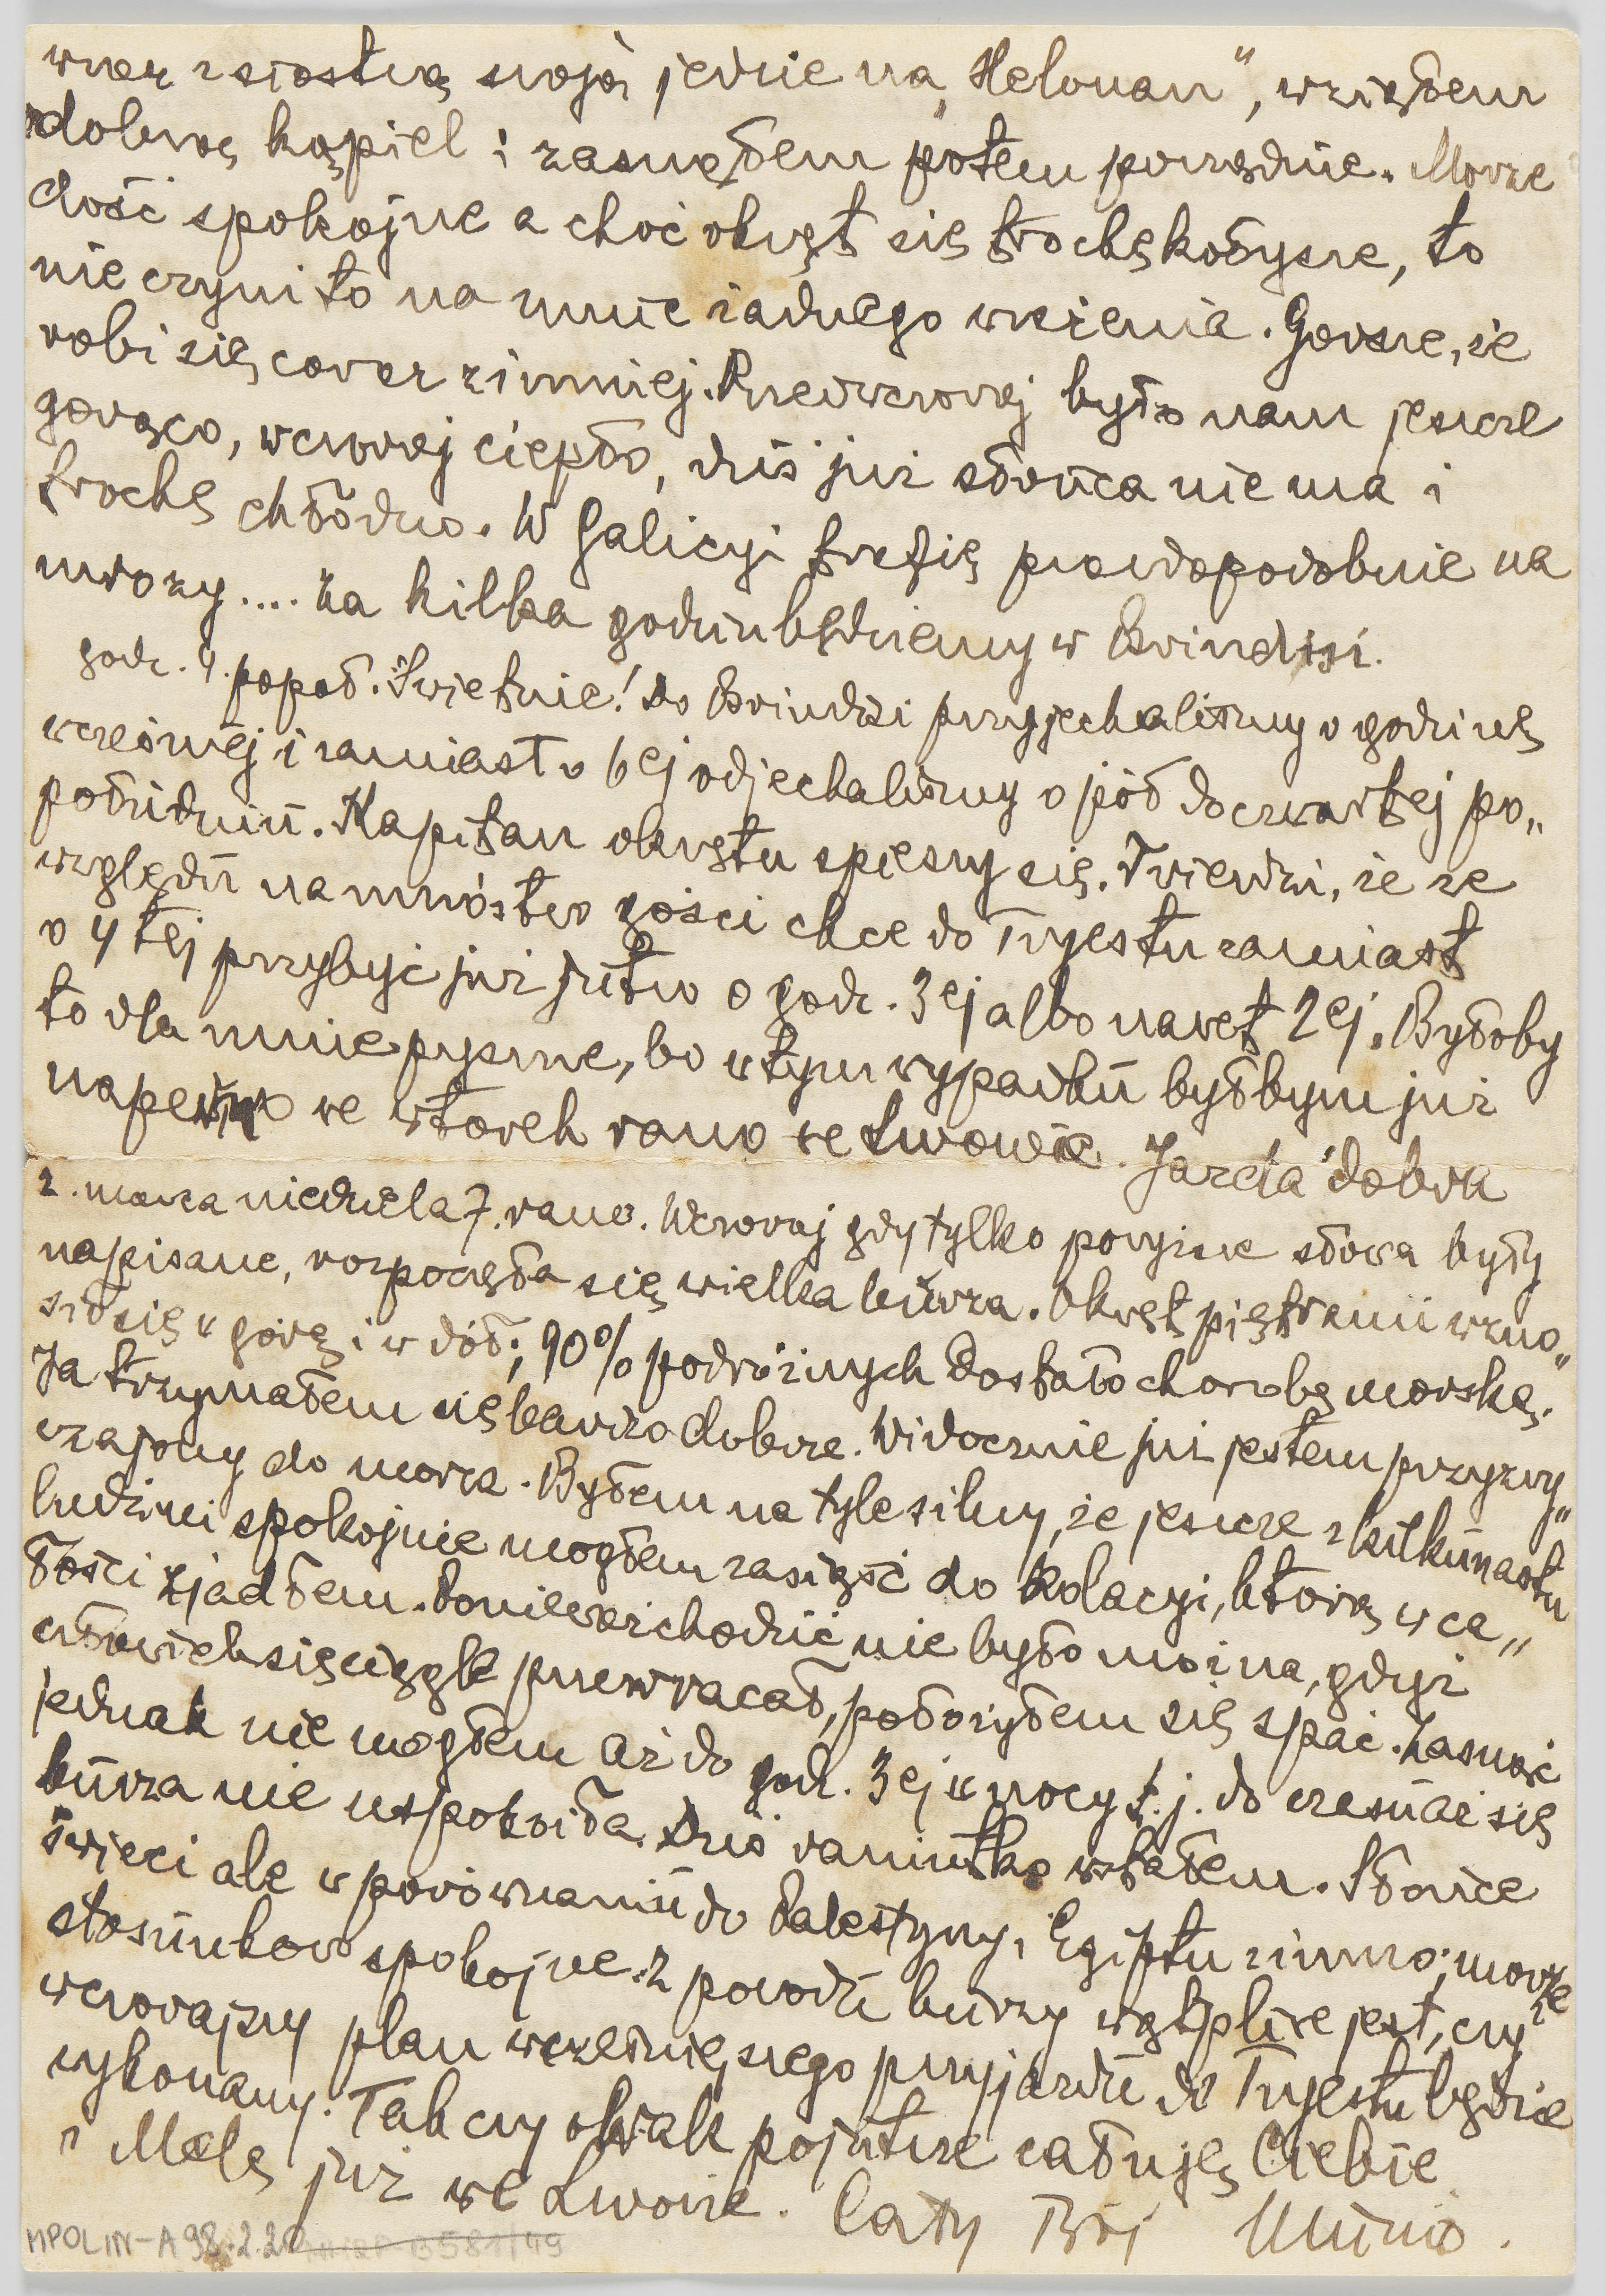 wraz z siostrą swoją jedzie na „Helouan", wziąłem
dobrą kąpiel i zasnąłem potem porządnie. Morze
dość spokojne a choć okręt się trochę kołysze, to
nie czyni to na mnie żadnego wrażenia. Gorsze, że
robi się coraz zimniej. Przedwczoraj było nam jeszcze
gorąco, wczoraj ciepło, dziś już słońca nie ma i
trochę chłodno. W Galicyi trafię prawdopodobnie na
mrozy.... Za kilka godzin będziemy w Brindisi.
godz. 4. popoł. Świetnie! Do Brindisi przyjechaliśmy o godzinę
wcześniej i zamiast o 6ej odjechaliśmy o pół do czwartej po„
południu. Kapitan okrętu spieszy się. Twierdzi, że ze
względu na mnóstwo gości chce do Tryestu zamiast
o 4tej przybyć już jutro o godz. 3ej albo nawet 2ej. Byłoby
to dla mnie pyszne, bo w tym wypadku byłbym już
napewno we wtorek rano we Lwowie. Jazda dobra
2. marca niedziela 7. rano. Wczoraj gdy tylko powyższe słowa były
napisane, rozpoczęła się wielka burza. Okręt piętrami wzno„
sił się w górę i w dół; 90% podróżnych dostało chorobę morską.
Ja trzymałem się bardzo dobrze. Widocznie już jestem przyzwy„
czajony do morza. Byłem na tyle silny, że jeszcze z kilkunastu
ludźmi spokojnie mogłem zasiąść do kolacyi, którą w ca„
łości zjadłem. Ponieważ chodzić nie było można, gdyż
człowiek się ciągle przewracał, położyłem się spać. Zasnąć
jednak nie mogłem aż do godz. 3ej w nocy t.j. do czasu aż się
burza nie uspokoiła. Dziś raniutko wstałem. Słońce
świeci ale w porównaniu do Palestyny i Egiptu zimno; morze
stosunkowo spokojne. Z powodu burzy wątpliwe jest, czy
wczorajszy plan wcześniejszego przyjazdu do Tryestu będzie
wykonany. Tak czy owak pojutrze całuję Ciebie
i Melę już we Lwowie. Cały Twój Munio.
MPOLIN-A98.2.20 581/49